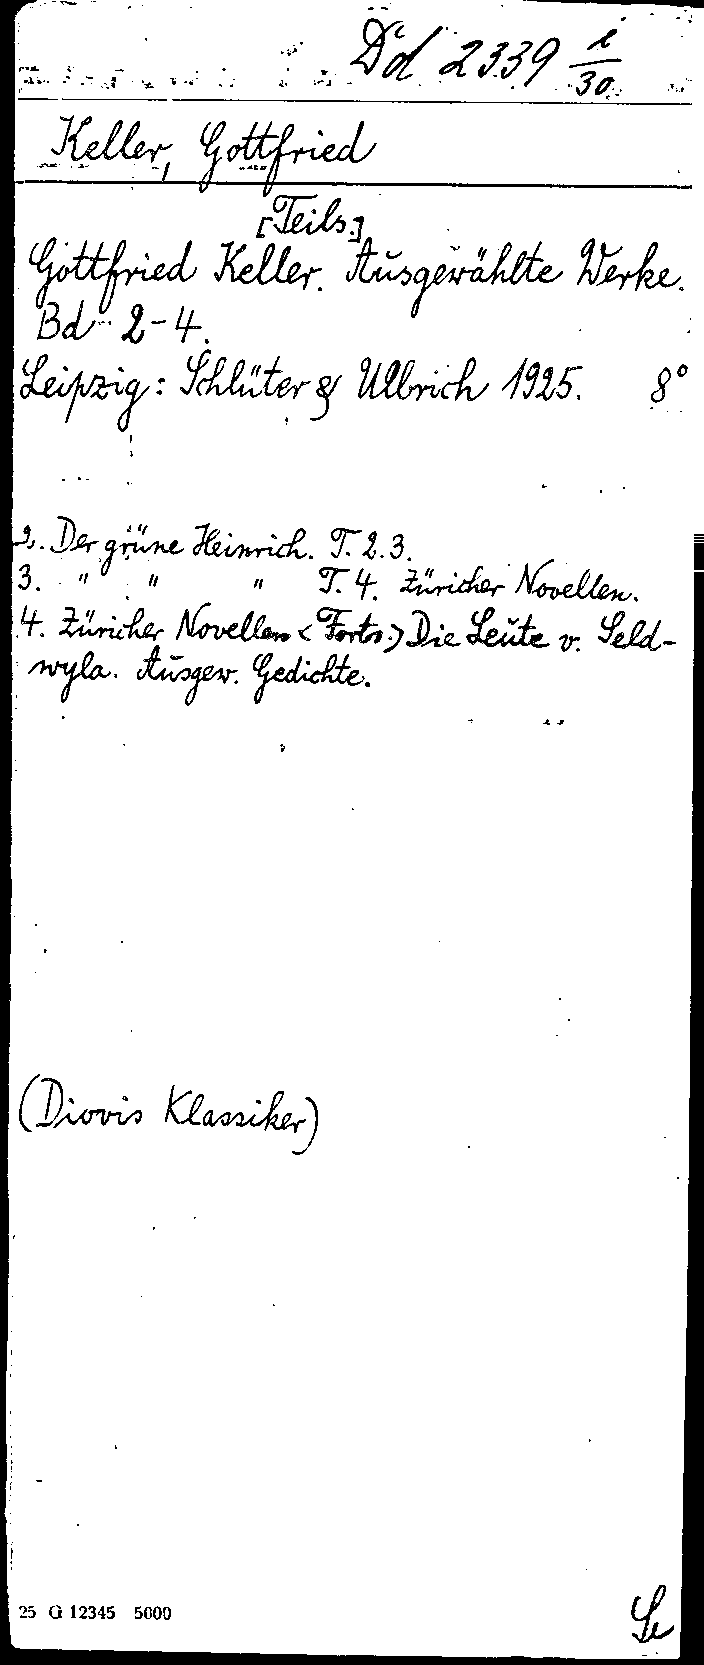 Dd 2339 i/30
Keller, Gottfried
[Teils.]
Gottfried Keller. Ausgewählte Werke.
Bd 2-4.
Leipzig: Schlüter & Ullrich 1925. 8°
2. Der grüne Heinrich. T. 2.3.
3. " " " T. 4. Züricher Novellen.
4. Züricher Novellen <Forts.> Die Leute v. Seld-
wyla. Ausgew. Gedichte.
(Diovis Klassiker)
25 G 12345 5000